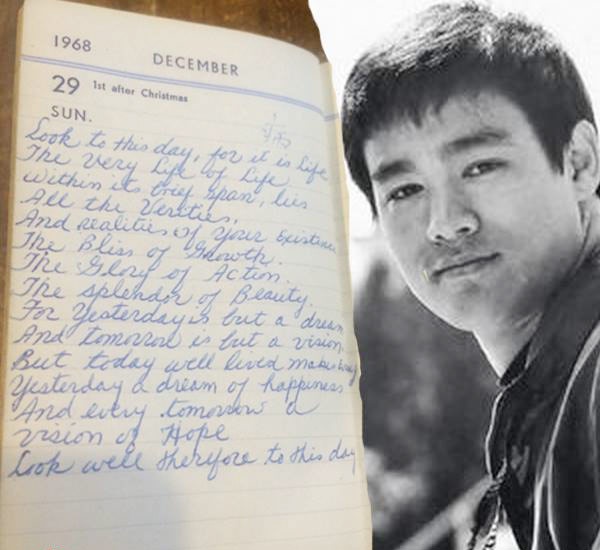 1968 DECEMBER
29 1st after Christmas
SUN.
Look to this day, for it is Life
The very Life of Life.
Within its brief span, lies
All the Verities,
And realities of Your Existence
The Bliss of Growth.
The Glory of Action.
The splendor of Beauty.
For Yesterday is but a dream
And tomorrow is but a vision.
But today well lived makes
Yesterday a dream of happiness
And every tomorrow a
vision of Hope
Look well therfore to this day